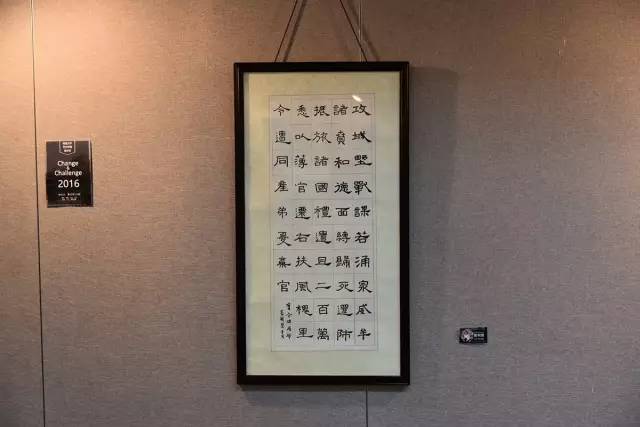 Change
&
Challenge
2016
攻城墅戰謀若涌泉威牟
諸賁和德面縛歸死還師
振旅諸國禮遺且二百萬
悉以薄官遷右扶風槐里
令遭同產弟憂棄官